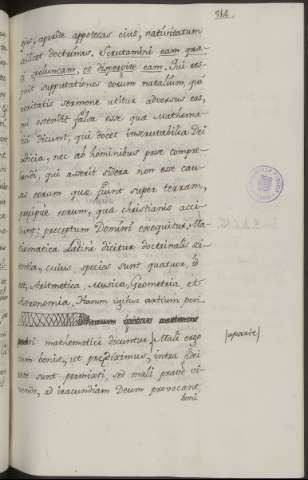 314.
ejus, aperite appotecas ejus, nativitatum
scilicet doctrinas. Scrutamini eam qua-
si et disperdite eam. Qui res-
puit supputationes eorum natalium, qui
veritatis sermone utitur adversus eos,
qui ostendit falsa esse quæ Mathema-
tici dicunt; qui docet inscrutabilia Dei
judicia, nec ab hominibus posse compre-
hendi, qui asserit sidera non esse cau-
sas eorum quæ fiunt super terram,
præcipue eorum, quæ christianis acci-
dunt; preceptum Domini exequitur. Ma-
thematica Latine dicitur doctrinalis sci-
entia, cujus species sunt quatuor, id
est, Aritmetica, Musica, Geometria, et
Astronomia. Harum igitur artium peri-
Harum igitur
mathematici dicuntur.] Mali ergo |aparte|
cum bonis, ut prediximus, intra fidei
sunt permixti, sed mali prave vi-
vendo, ad iracundiam Deum provocant,
boni